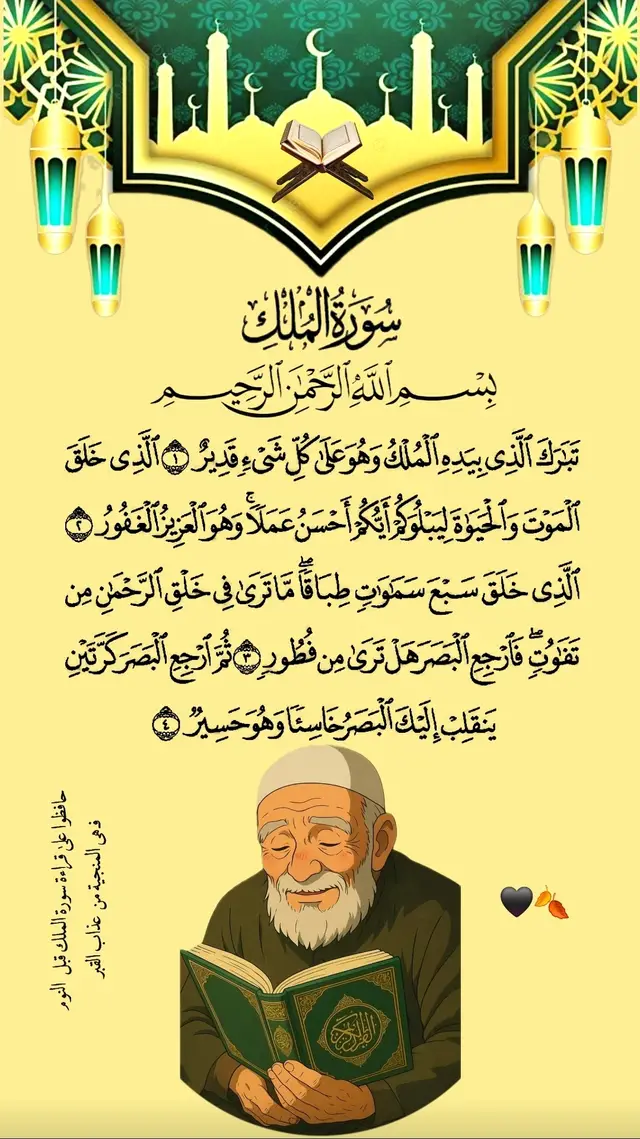 سُورَةُ الْمُلْكِ
بِسْمِ اللَّهِ الرَّحْمَٰنِ الرَّحِيمِ
تَبَارَكَ الَّذِي بِيَدِهِ الْمُلْكُ وَهُوَ عَلَىٰ كُلِّ شَيْءٍ قَدِيرٌ ١ الَّذِي خَلَقَ
الْمَوْتَ وَالْحَيَوٰةَ لِيَبْلُوَكُمْ أَيُّكُمْ أَحْسَنُ عَمَلًا ۚ وَهُوَ الْعَزِيزُ الْغَفُورُ ٢
الَّذِي خَلَقَ سَبْعَ سَمَٰوَٰتٍ طِبَاقًا ۖ مَّا تَرَىٰ فِي خَلْقِ الرَّحْمَٰنِ مِن
تَفَٰوُتٍ ۖ فَارْجِعِ الْبَصَرَ هَلْ تَرَىٰ مِن فُطُورٍ ٣ ثُمَّ ارْجِعِ الْبَصَرَ كَرَّتَيْنِ
يَنقَلِبْ إِلَيْكَ الْبَصَرُ خَاسِئًا وَهُوَ حَسِيرٌ ٤
حافظوا على قراءة سورة الملك قبل النوم
فهي المنجية من عذاب القبر
القرآن الكريم